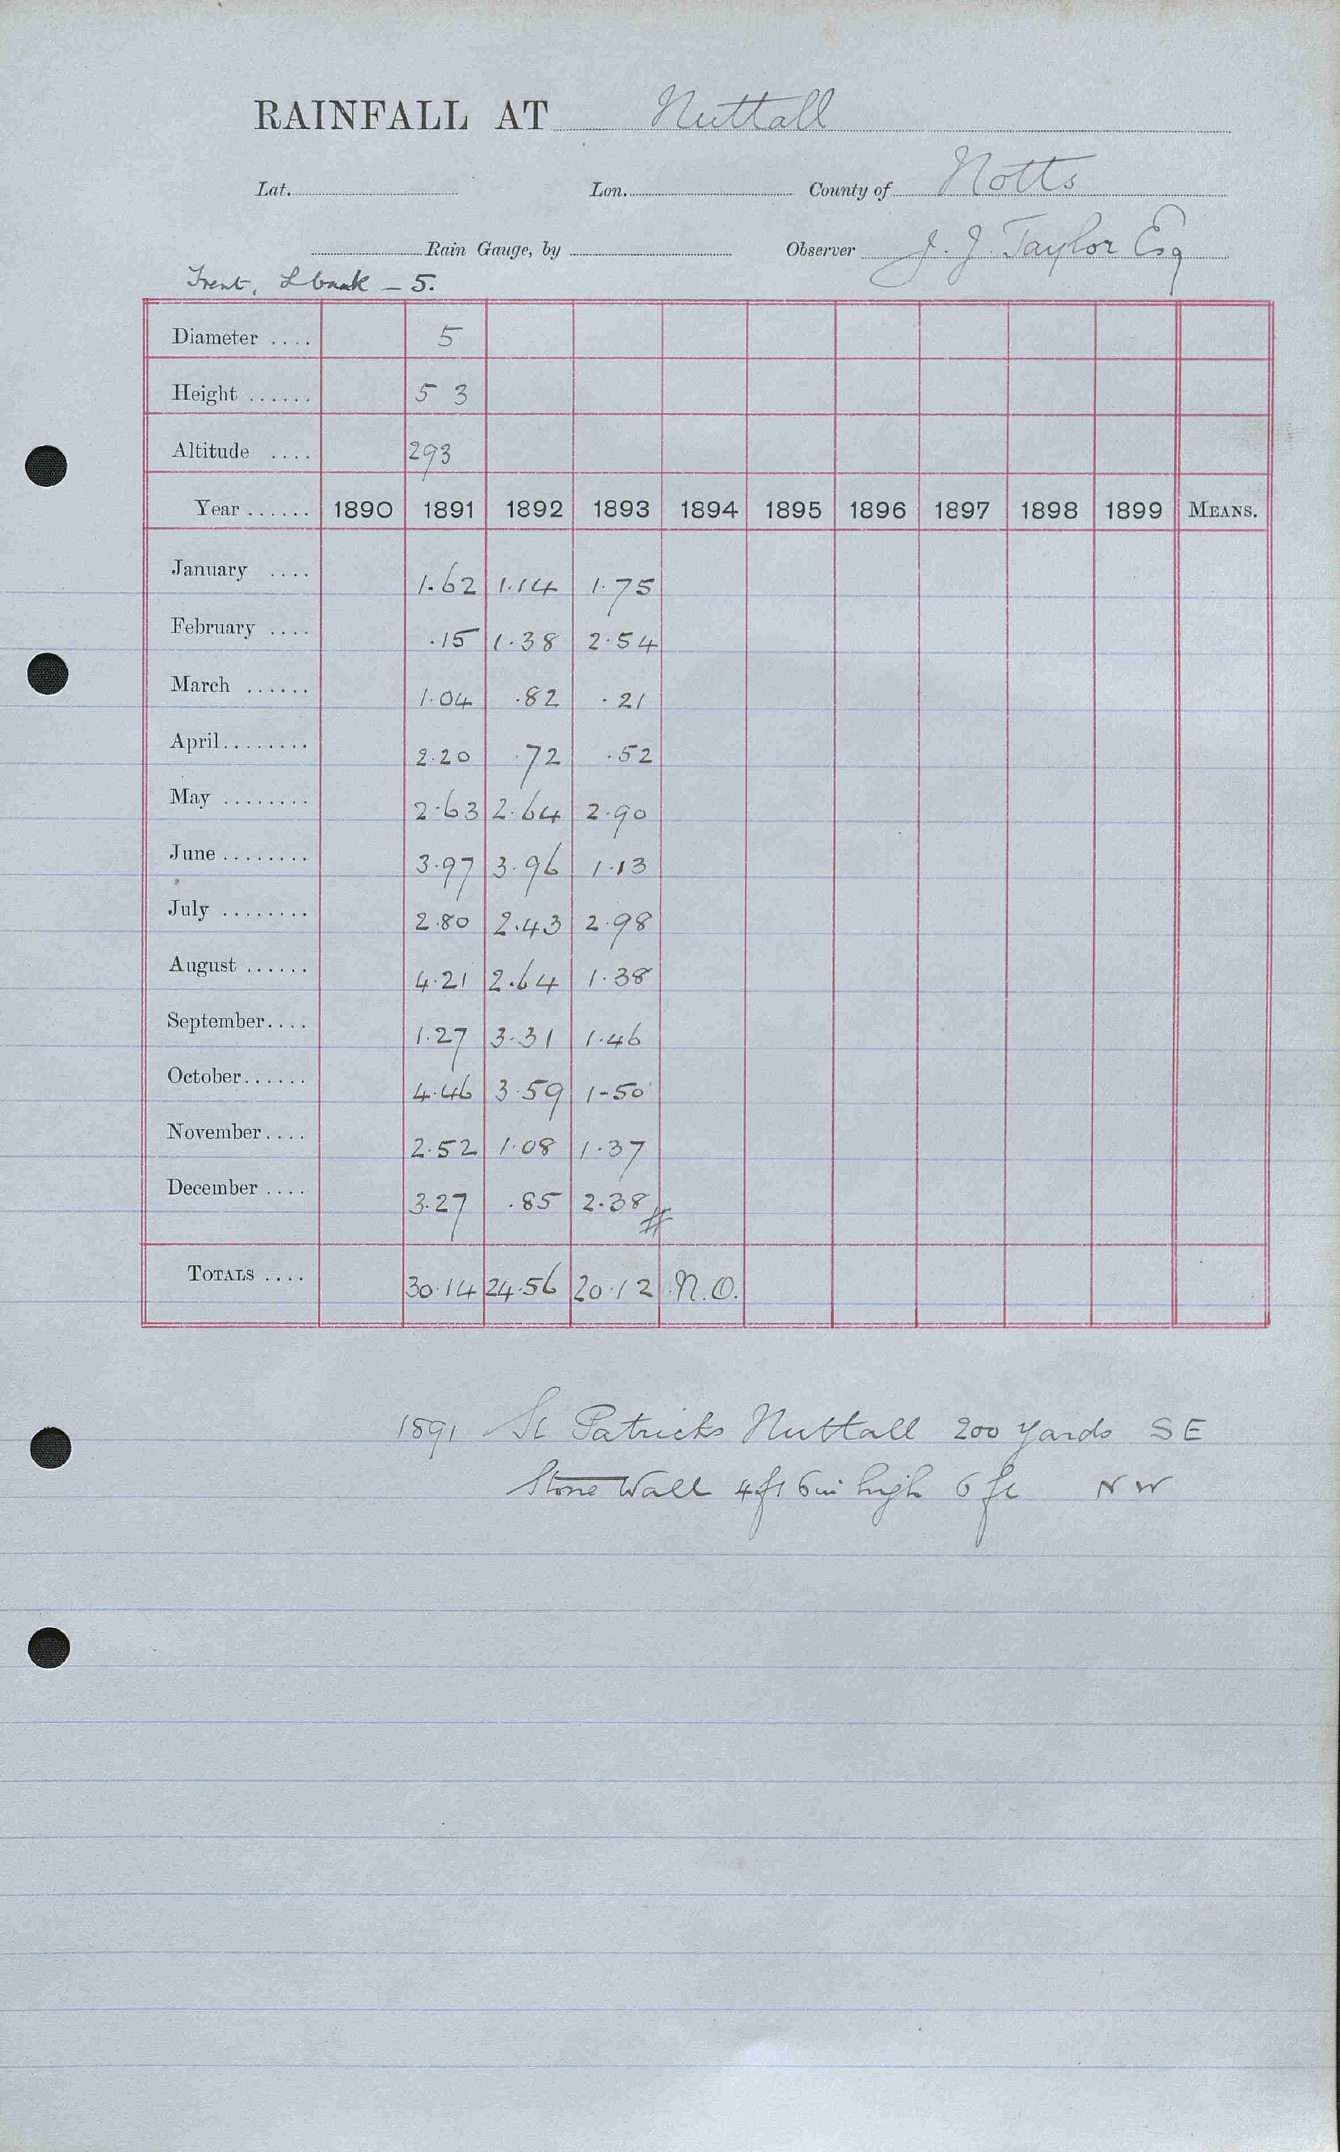 RAINFALL AT Nuttall
Lat. Lon. County of Notts
Rain Gauge, by Observer J. J. Taylor Esq
Trent, L bank - 5.
Diameter .... 5
Height ...... 5 3
Altitude .... 293
Year ...... 1890 1891 1892 1893 1894 1895 1896 1897 1898 1899 MEANS.
January .... 1.62 1.14 1.75
February .... .15 1.38 2.54
March ...... 1.04 .82 .21
April........ 2.20 .72 .52
May ........ 2.63 2.64 2.90
June ........ 3.97 3.96 1.13
July ........ 2.80 2.43 2.98
August ...... 4.21 2.64 1.38
September.... 1.27 3.31 1.46
October...... 4.46 3.59 1-50
November.... 2.52 1.08 1.37
December .... 3.27 .85 2.38 #
TOTALS .... 30.14 24.56 20.12 N.O.
1891 St Patricks Nuttall 200 yards SE
Stone Wall 4ft 6in high 6 ft NW